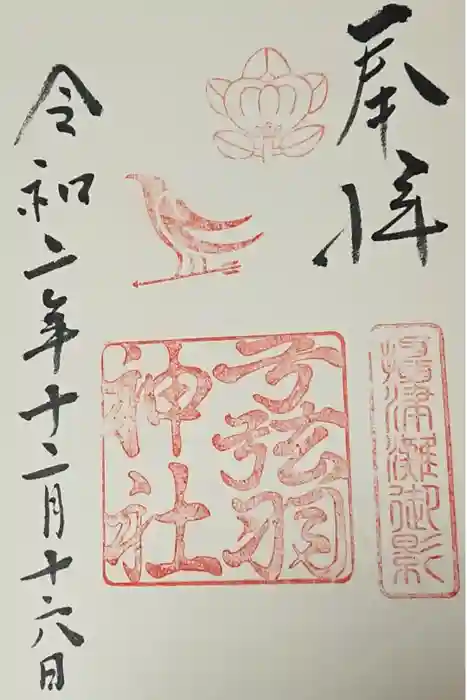 奉拝
摂津灘御影
弓弦羽
神社
令和二年十二月十六日